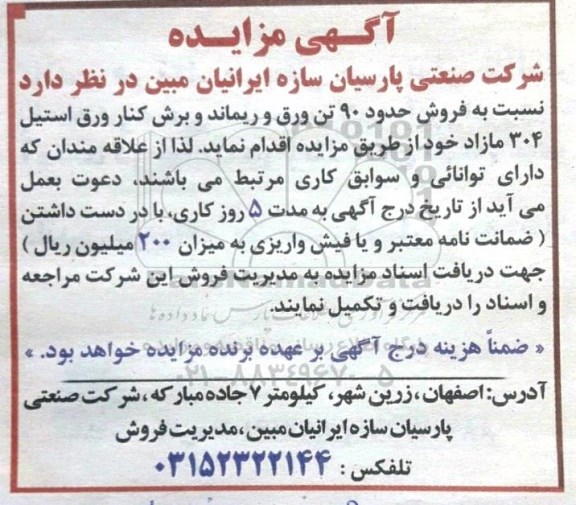 آگهی مزایده
شرکت صنعتی پارسیان سازه ایرانیان مبین در نظر دارد
نسبت به فروش حدود ۹۰ تن ورق و ریماند و برش کنار ورق استیل
۳۰۴ مازاد خود از طریق مزایده اقدام نماید. لذا از علاقه مندان که
دارای توانائی و سوابق کاری مرتبط می باشند، دعوت بعمل
می آید از تاریخ درج آگهی به مدت ۵ روز کاری، با در دست داشتن
( ضمانت نامه معتبر و یا فیش واریزی به میزان ۲۰۰ میلیون ریال )
جهت دریافت اسناد مزایده به مدیریت فروش این شرکت مراجعه
و اسناد را دریافت و تکمیل نمایند.
« ضمناً هزینه درج آگهی بر عهده برنده مزایده خواهد بود. »
آدرس: اصفهان، زرین شهر، کیلومتر ۷ جاده مبارکه، شرکت صنعتی
پارسیان سازه ایرانیان مبین، مدیریت فروش
تلفکس: ۰۳۱۵۲۳۲۲۱۴۴